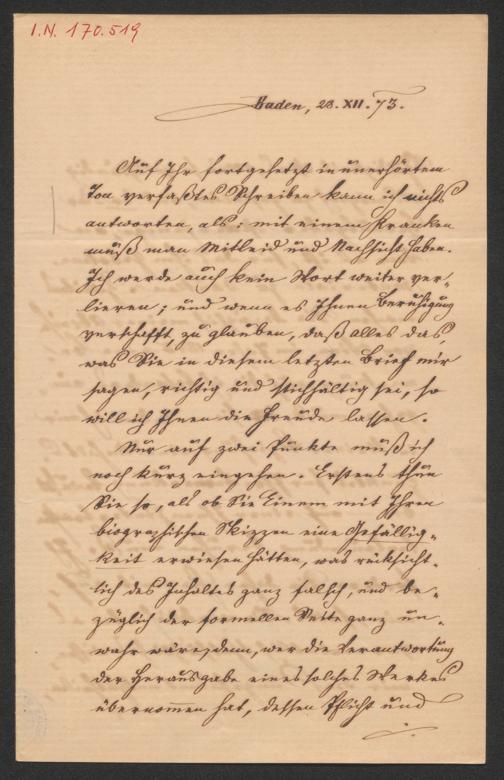 I.N. 170.519
Baden, 28. XII. 73.
Auf Ihr fortgesetzt in unerhörtem
Ton verfaßtes Schreiben kann ich nichts
antworten, als: mit einem Kranken
muß man Mitleid und Nachsicht haben.
Ich werde auch kein Wort weiter ver-
lieren; und wenn es Ihnen Beruhigung
verschafft, zu glauben, daß alles das,
was Sie in diesem letzten Brief mir
sagen, richtig und stichhältig sei, so
will ich Ihnen die Freude lassen.
Nur auf zwei Punkte muß ich
noch kurz eingehen. Erstens thun
Sie so, als ob Sie Einem mit Ihren
biographischen Skizzen eine Gefällig-
keit erwiesen hätten, was rücksicht-
lich des Inhaltes ganz falsch, und be-
züglich der formellen Seite ganz un-
wahr wäre; denn, wer die Verantwortung
der Herausgabe eines solchen Werkes
übernommen hat, dessen Pflicht und